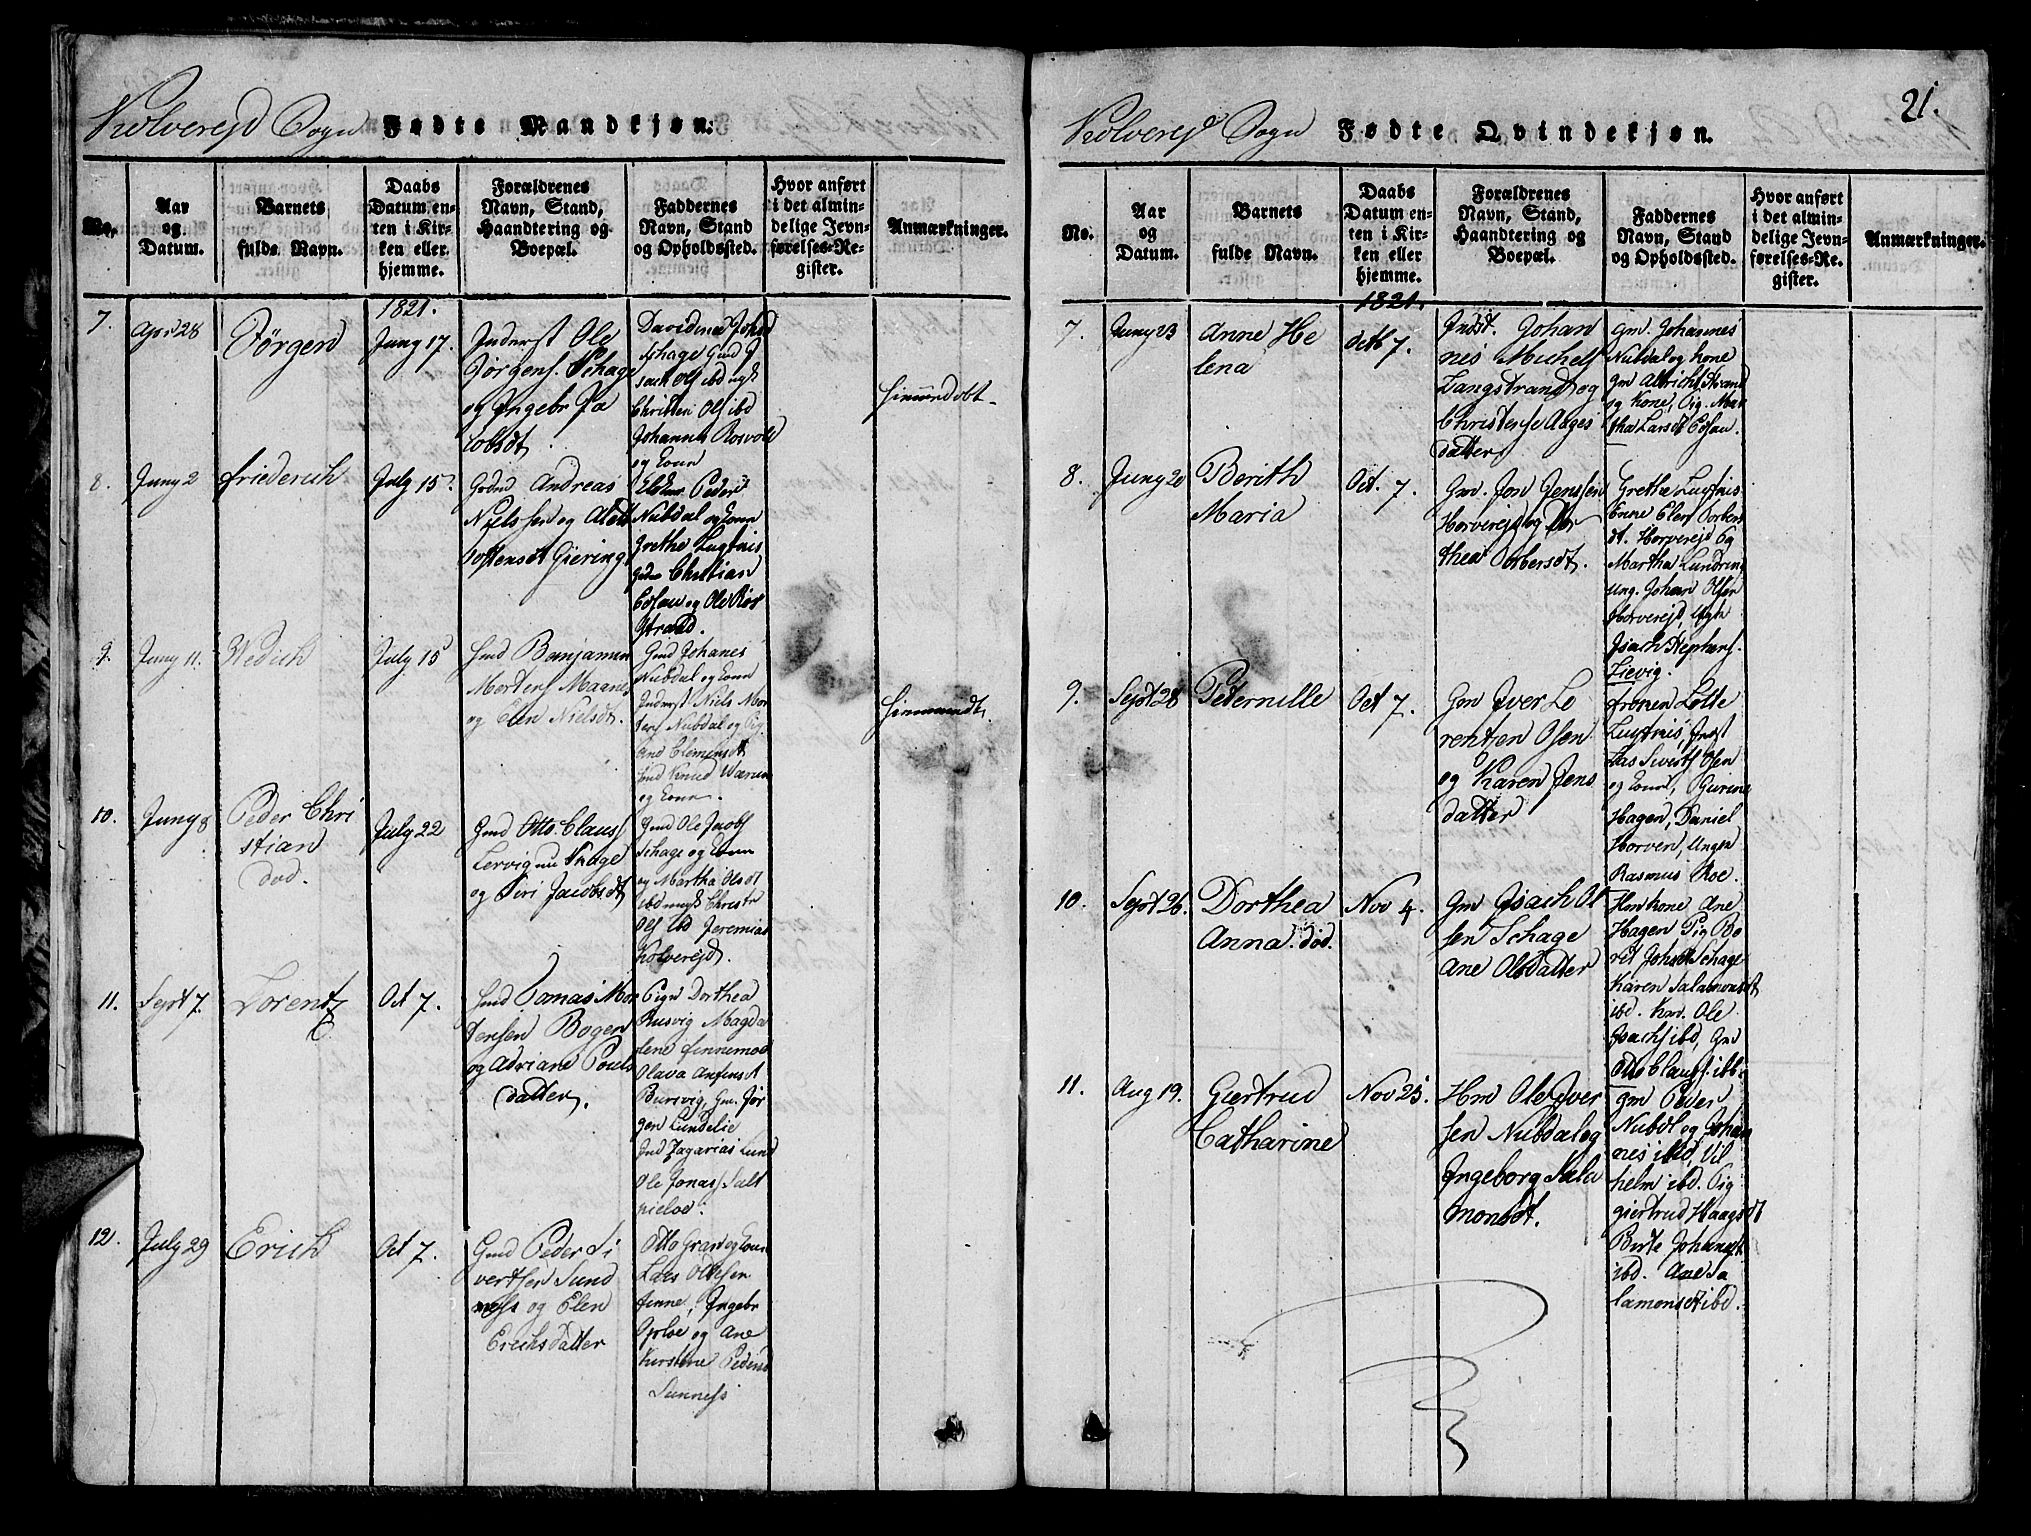 Kolverejd Sogn Fødte Mandkjøn.
No.
Aar
og
Datum.
Barnets
fulde Navn.
Daabs
Datum en-
ten i Kir-
ken eller
hjemme.
Forældrenes
Navn, Stand,
Haandtering og
Boepæl.
Faddernes
Navn, Stand
og Opholdssted.
Hvor anført
i det almin-
delige Jevn-
førelses-Re-
gister.
Anmærkninger.
1821.
7.
Apr 28
Jørgen
Juny 17.
Inderst Ole
Jørgens. Schage
og Ingebr Ja
cobsdt.
Schage Gmd
Christen Ols ibd
Johannes Rosvold
og Kone
hiemmedøbt
8.
Juny 2
friederich
July 15.
Andreas
Nielssen og
Giering
Peder
Nubdal og kone
Grethe Lugtnis
Christian
Edsau og Ole Ros
strand.
9.
Juny 11.
Wedich
July 15
Gmd Benjamin
Mortens Maanes
og Elen Nielsdt.
Gmd Johanes
Nubdal og Kone
Inderst Niels Mor
tens Nubdal og Pig
Ane Clemensdt
Gmd Knud
og kone.
hiemmedt.
10.
Juny 8
Peder Chri
stian
død.
July 22
Gmd Otto Claus
Lervig nu Skage
og Siri Jacobsdt
Gmd Ole Jacobs
Schage og Kone
og Martha Olsdt
ibd Christe
Ols ibd Jeremias
Kolverejd.
11.
Sept 7.
Lorentz
Oct 7.
Gmd Tomas Mor
tensen Bogen
og Adriane Pouls
datter.
Pign Dorthea
Rusvig Magda
lene finnemoe
Olava
Gm. Jør
gen Lundelie
Ind Zagarias Lund
Ole Jonas Salt
12.
July 29
Erich
Oct 7.
Gmd Peder Si
vertsen Sund
og Elen
Erichsdatter
Otto Gran og Kone
Lars Olsen
finne, Ingebr
Oploe og Ane
Kirstine Peders
Sunness
21.
Kolverejd Sogn Fødte Qvindekjøn.
No.
Aar
og
Datum.
Barnets
fulde Navn.
Daabs
Datum en-
ten i Kir-
ken eller
hjemme.
Forældrenes
Navn, Stand,
Haandtering og
Boepæl.
Faddernes
Navn, Stand
og Opholdssted.
Hvor anført
i det almin-
delige Jevn-
førelses-Re-
gister.
Anmærkninger.
1821.
7.
Juny 23
Anne He
lena
Octb 7.
Indst. Johan
nis Michels
Langstrand og
Christense Aages
datter
Gm. Johannes
Nubdal og kone
Gm Albricht Strand
og Kone, Pig. Mar
tha Larsdt Edsau.
8.
Juny 20
Berith
Maria
Oct. 7.
Gm. Jon Jenssen
Horverejd og Dor
thea Torbersdt.
Grethe Lugtnis
Enne Elen Torbers
dt. Horverejd Og
Martha Lundring
Ung. Johan Olsen
Horverejd, Ungk
Isach Stephens.
Lievig.
9.
Sept 28
Peternille
Oct 7.
Gm Iver Lo
rentzen Osen
og Karen Jens
datter
fronen Lotte
Lugtnis, Inst
Lars Sivert Osen
og kone, Gurine
Hagen, Daniel
Horven, Ungen
Rasmus Roe.
10.
Sept 26.
Dorthea
Anna. død.
Nov 4.
Gm Isach Ol
sen Schage
Ane Olsdatter
Hm kone Ane
Hagen Pig Bo
ret Johsdt Schage
Karen Salamonsdt
ibd. Kar. Ole
Isachs ibd, Gm
Otto Claus. ibd.
11.
Aug 19.
Giertrud
Catharine
Nov 25.
Hm Ole Iver
sen Nubdal og
Ingeborg Sala
monsdt.
Gm Peder
Nubdl og Johan
nis ibid, Vil
helm ibd. Pig
giertrud Haagsdt
Birte Johansdt
ibd. Ane Sa
lamonsdt ibd.